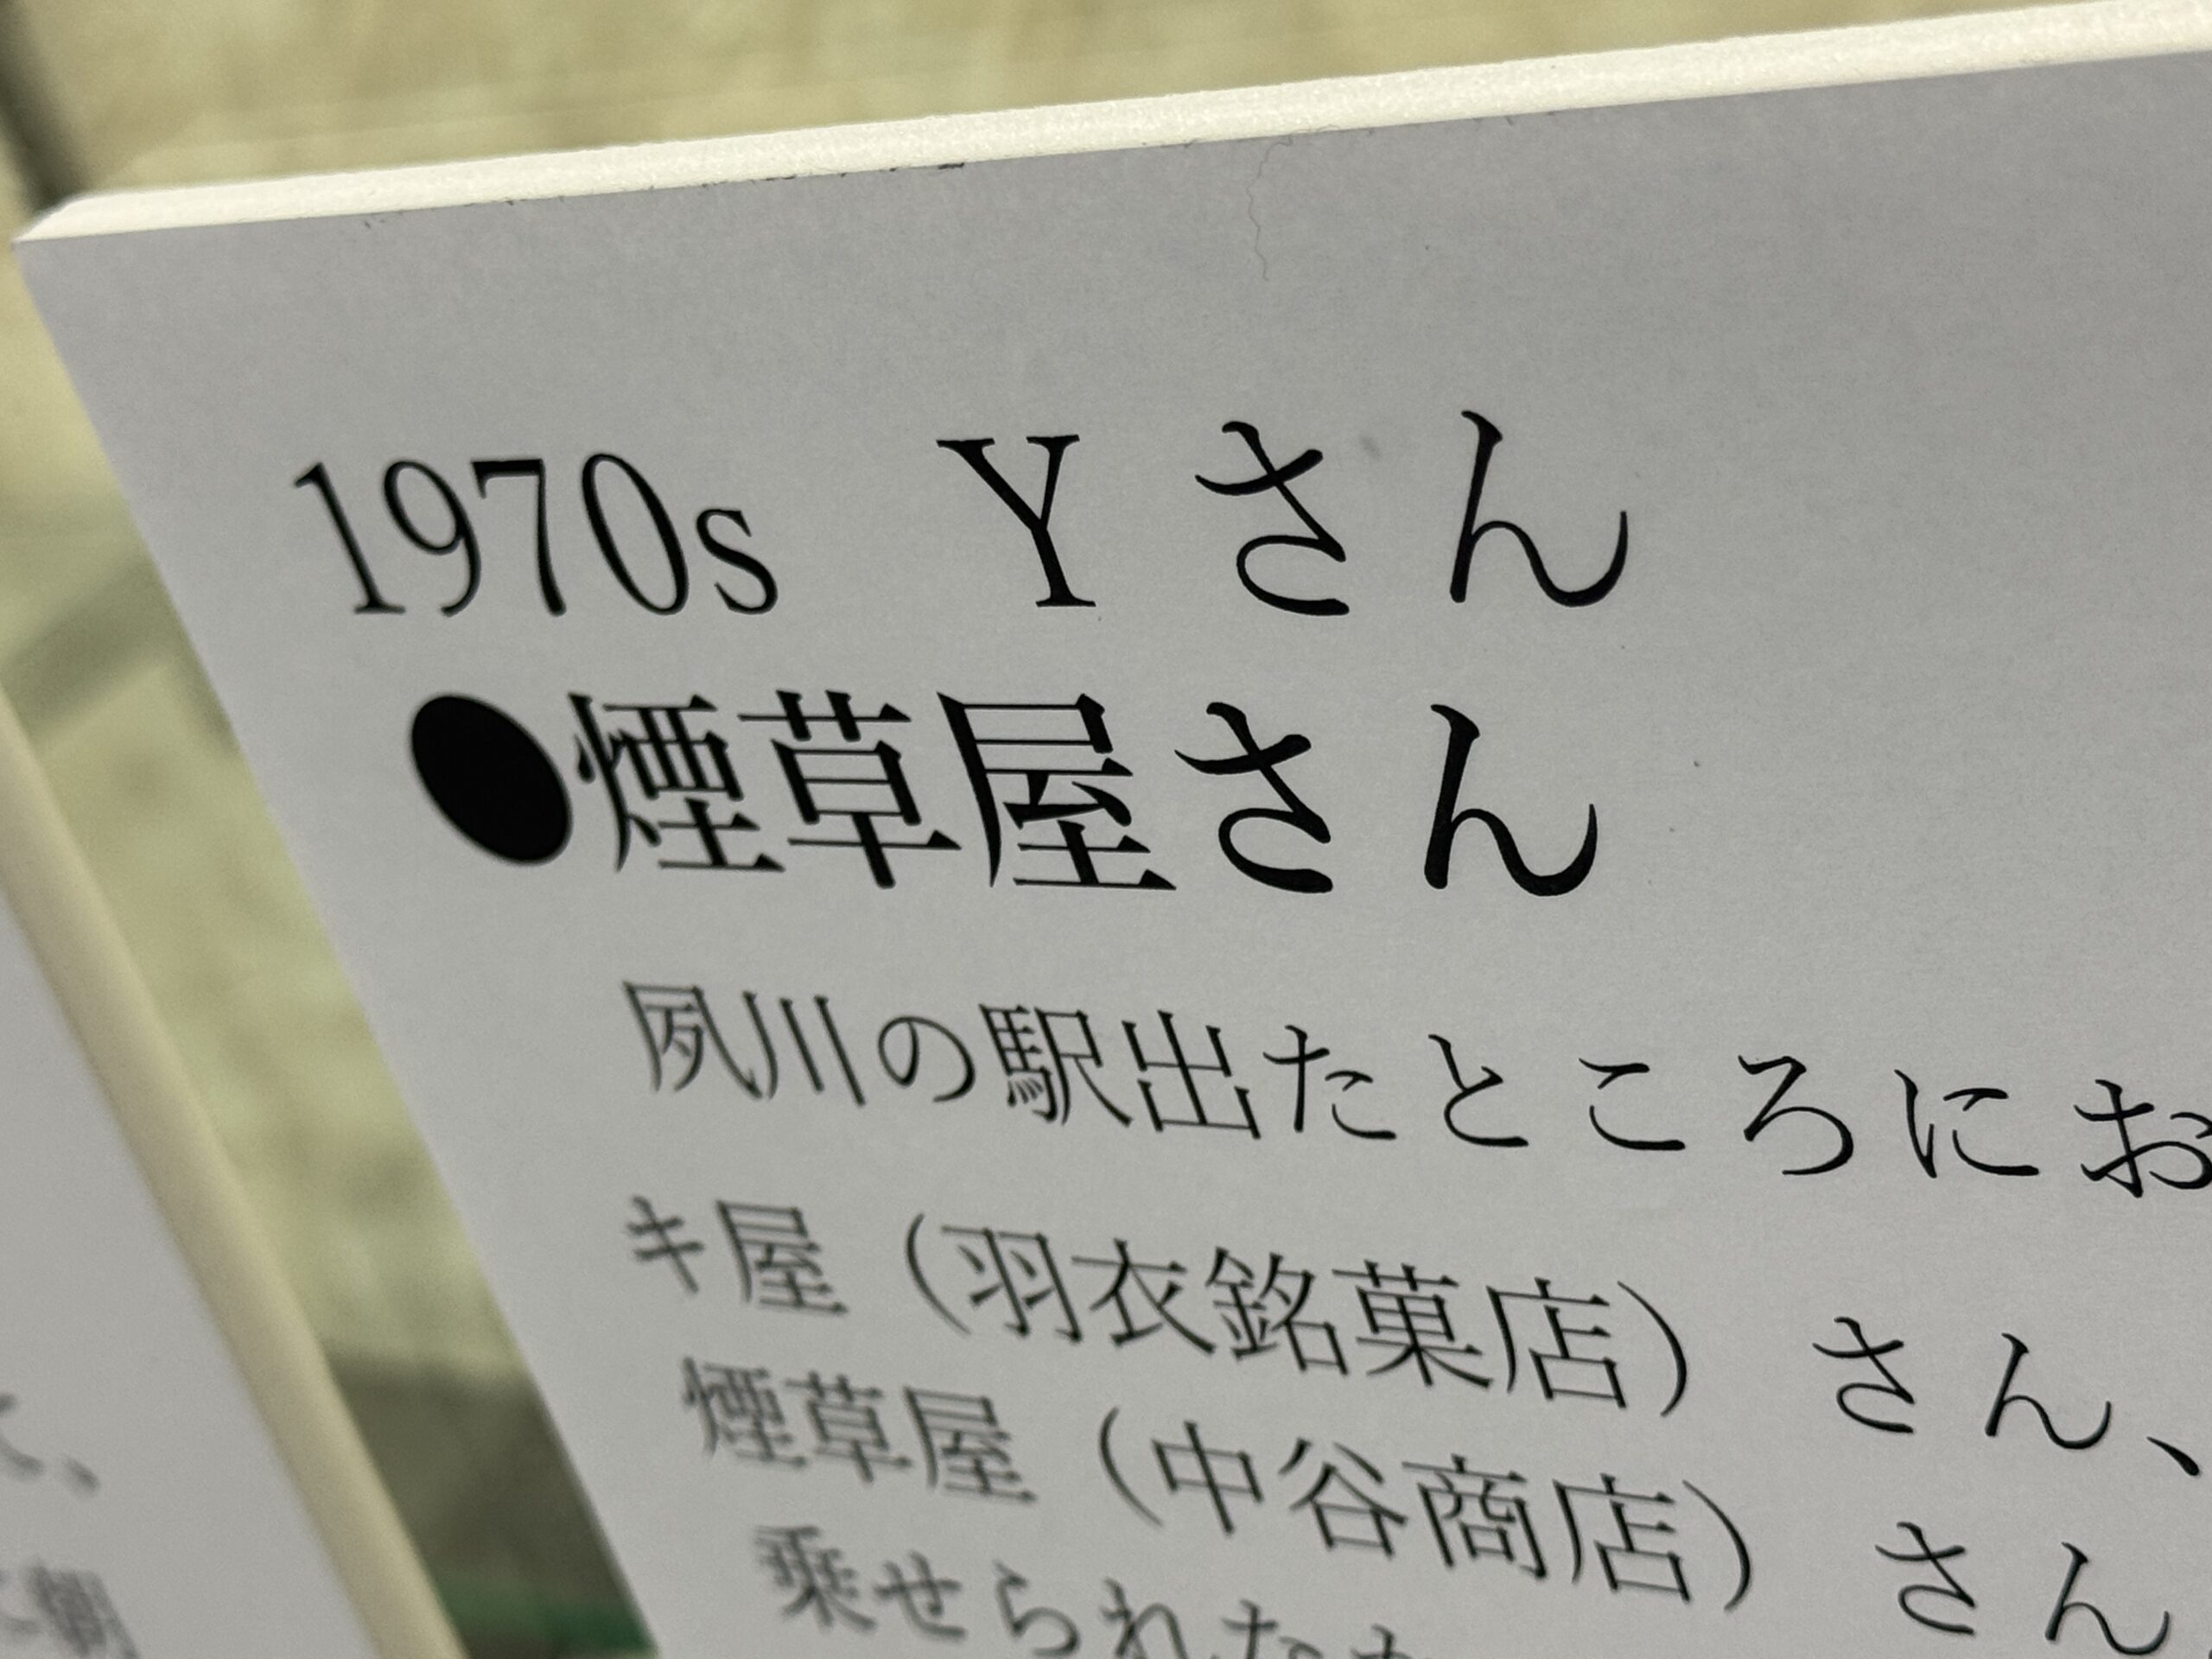 1970s　Yさん
●煙草屋さん
夙川の駅出たところにお
キ屋（羽衣銘菓店）さん、
煙草屋（中谷商店）さん
乗せられた
て、
朝